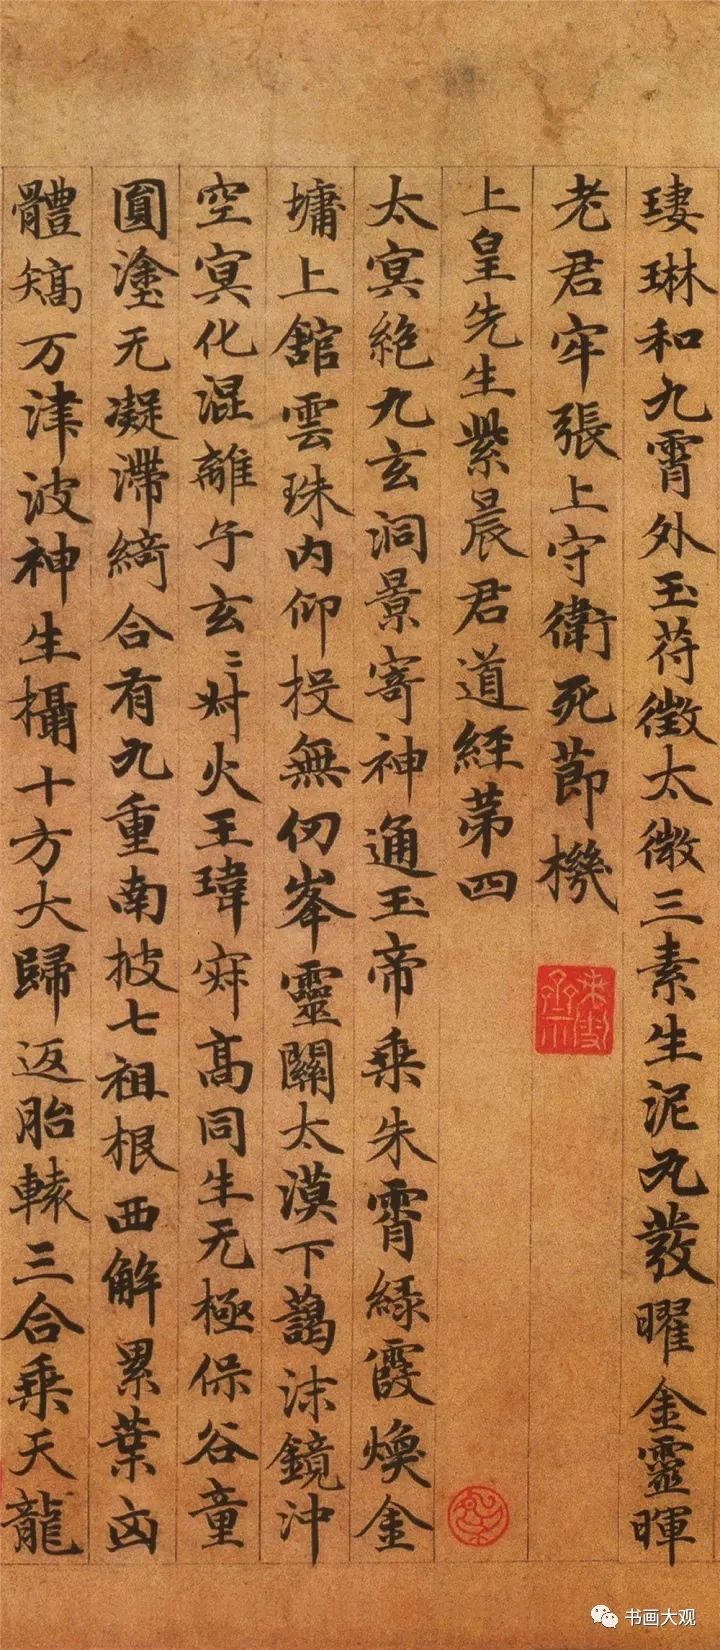 瓊琳和九霄外玉苻徵太微三素生泥丸發曜金靈暉
老君牢張上守衛死節機
上皇先生紫晨君道經第四
太冥絶九玄洞景寄神通玉帝乗朱霄緑霞煥金
墉上舘雲珠内仰投無刃峯靈關太漠下藹沫鏡沖
空冥化混離子玄〻對火王瑋寂髙同生无極保谷童
圓塗无凝滯綺合有九重南披七祖根西解累葉凶
體矯万津波神生攝十方大歸返胎轅三合乗天龍
书画大观